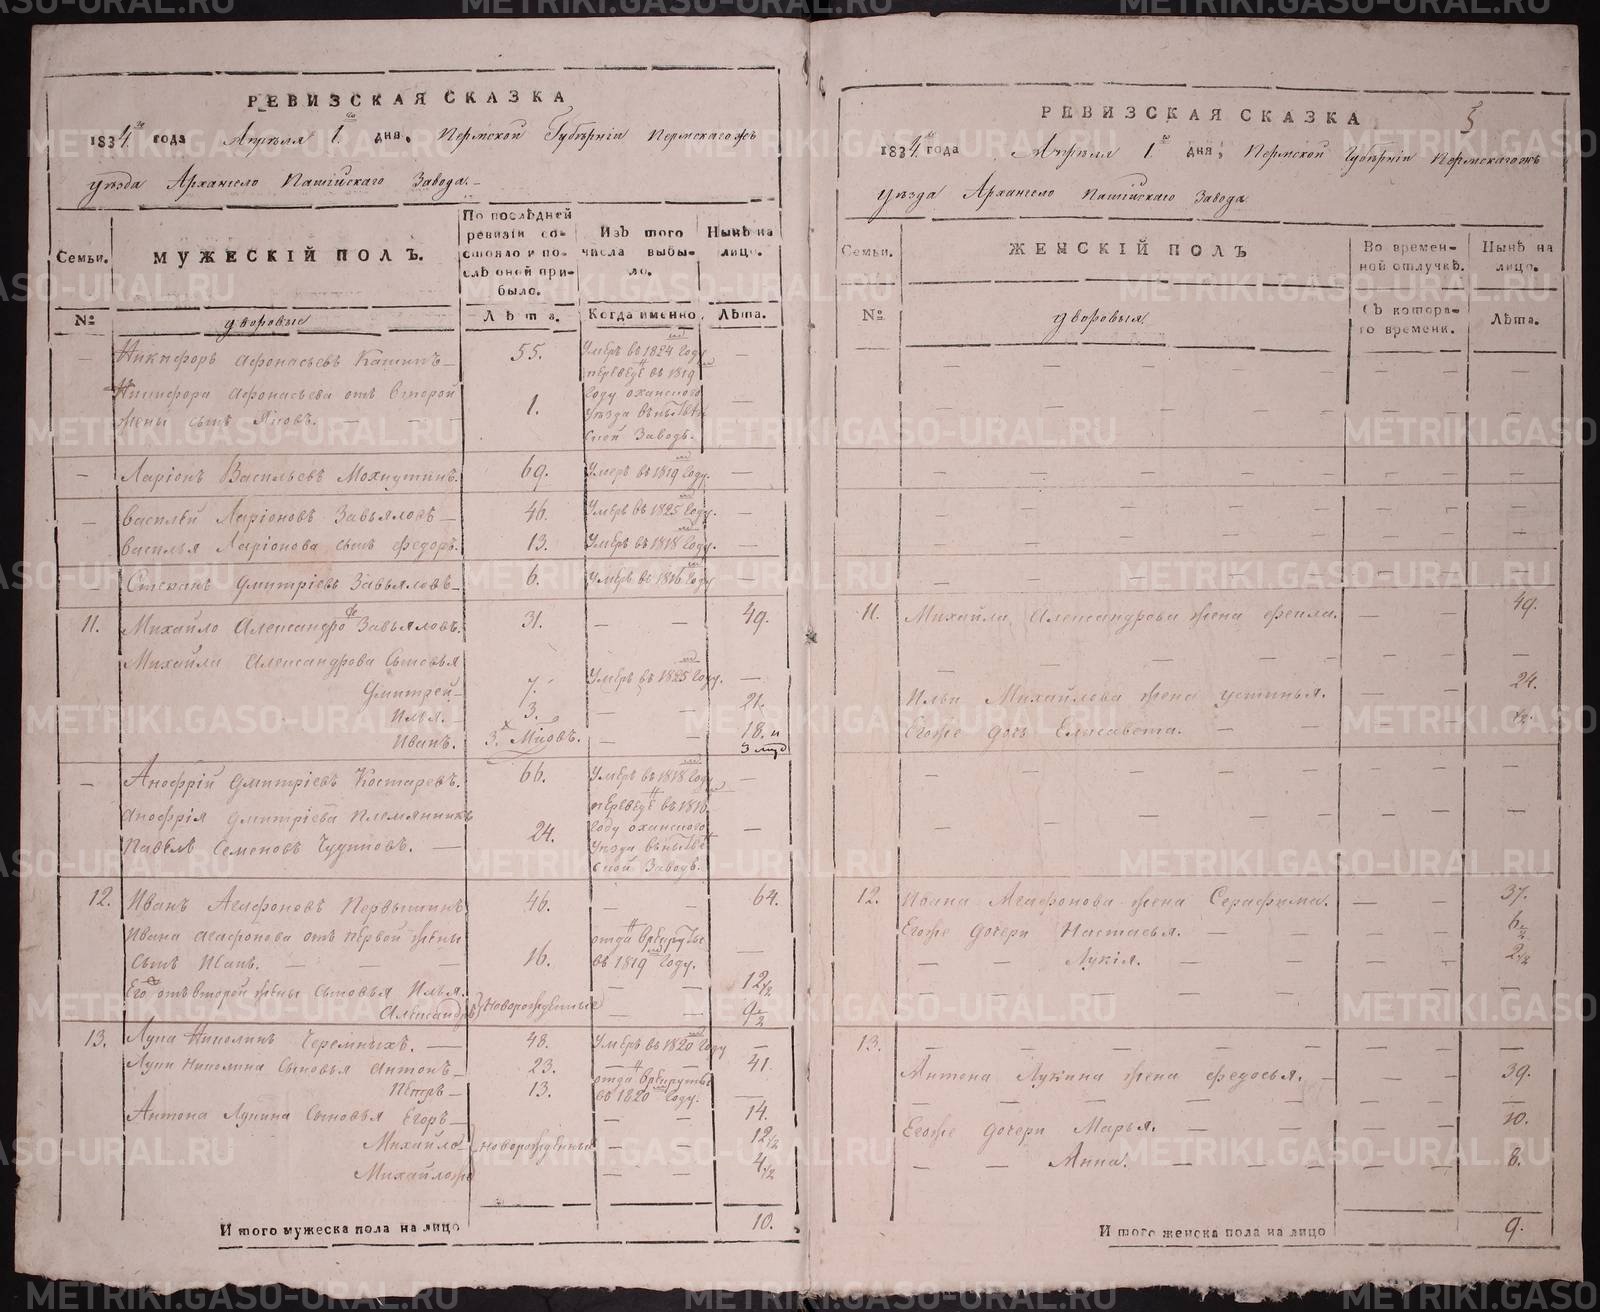 РЕВИЗСКАЯ СКАЗКА
1834.го года Апреля 1.го дня, Пермской Губѣрнiи Пермскагожъ
уѣзда Архангело Пашiйскаго Завода.
Семьи. МУЖЕСКIЙ ПОЛЪ. По послѣдней ревизiи состояло и послѣ оной прибыло. Изъ того числа выбыло. Нынѣ на лицо.
№ дворовые Лѣта. Когда именно. Лѣта.
— Никифоръ Афонасьевъ Кашинъ — 55. Умѣръ въ 1824 году —
Никифора Афонасьева отъ второй жены сынъ Яковъ. — 1. переведѣнъ въ 1819 году оханскаго уѣзда —
— Ларiонъ Васильевъ Мохнуткинъ. 69. Умеръ въ 1819 году. —
— Василѣй Ларiоновъ Завьяловъ — 46. Умѣръ въ 1825 году. —
Василья Ларiонова сынъ Федоръ. 13. Умѣръ въ 1818 году. —
— Степанъ Дмитрiевъ Завьяловъ — 6. Умѣръ въ 1816 году —
11. Михайло Александровъ Завьяловъ. 31. — — 49.
Михайла Александрова Сыновья
Дмитрей — 7. Умѣръ въ 1825 году. —
Илья. — 3. — — 21.
Иванъ. 3.х Мѣсовъ. — — 18. и 3 мѣс
— Анофрiй Дмитрiевъ Костаревъ. 66. Умѣръ въ 1818 году —
Анофрiя Дмитрiева племянникъ
Павѣлъ Семеновъ Чудиновъ. — 24. переведѣнъ въ 1816 году оханскаго уѣзда —
12. Иванъ Агафоновъ Первышинъ 46. — — 64.
Ивана Агафонова отъ первой жены
сынъ Исакъ. — — 16. отданъ въ рекруты въ 1819 году. —
Его отъ второй жены сыновья Илья. — — 12 1/2
Александръ новорожденные — — 9 1/2
13. Лука Николинъ Черемныхъ. — 48. Умѣръ въ 1820 году —
Луки Николина сыновья Антонъ — 23. — — 41.
Петръ — 13. отданъ в рекруты въ 1820 году. —
Антона Лукина сыновья Егоръ — — — 14.
Михайла новорожденные — — 12 1/2
Михайложа — — 4 1/2
И того мужеска пола на лицо 10.
РЕВИЗСКАЯ СКАЗКА
1834.го года Апреля 1.го дня, Пермской Губѣрнiи Пермскагожъ
уѣзда Архангело Пашiйскаго Завода
Семьи. ЖЕНСКIЙ ПОЛЪ Во временной отлучкѣ. Нынѣ на лицо.
№ дворовыя. Съ котораго времени. Лѣта.
11. Михайла Александрова жена Фекла. — — 49.
Ильи Михайлова жена устинья. — — 24.
Егоже дочь Елисавета. — — — 1/2.
12. Ивана Агафонова жена Серафима. — — 37.
Егоже дочери Настасья. — — — 6 1/2
Лукiя. — — — 2 1/2
13. — — — — — —
Антона Лукина жена Федосья. — — 39.
Егоже дочери Марья. — — — 10.
— — Анна. — — — — 8.
И того женска пола на лицо 9.
METRIKI.GASO-URAL.RU